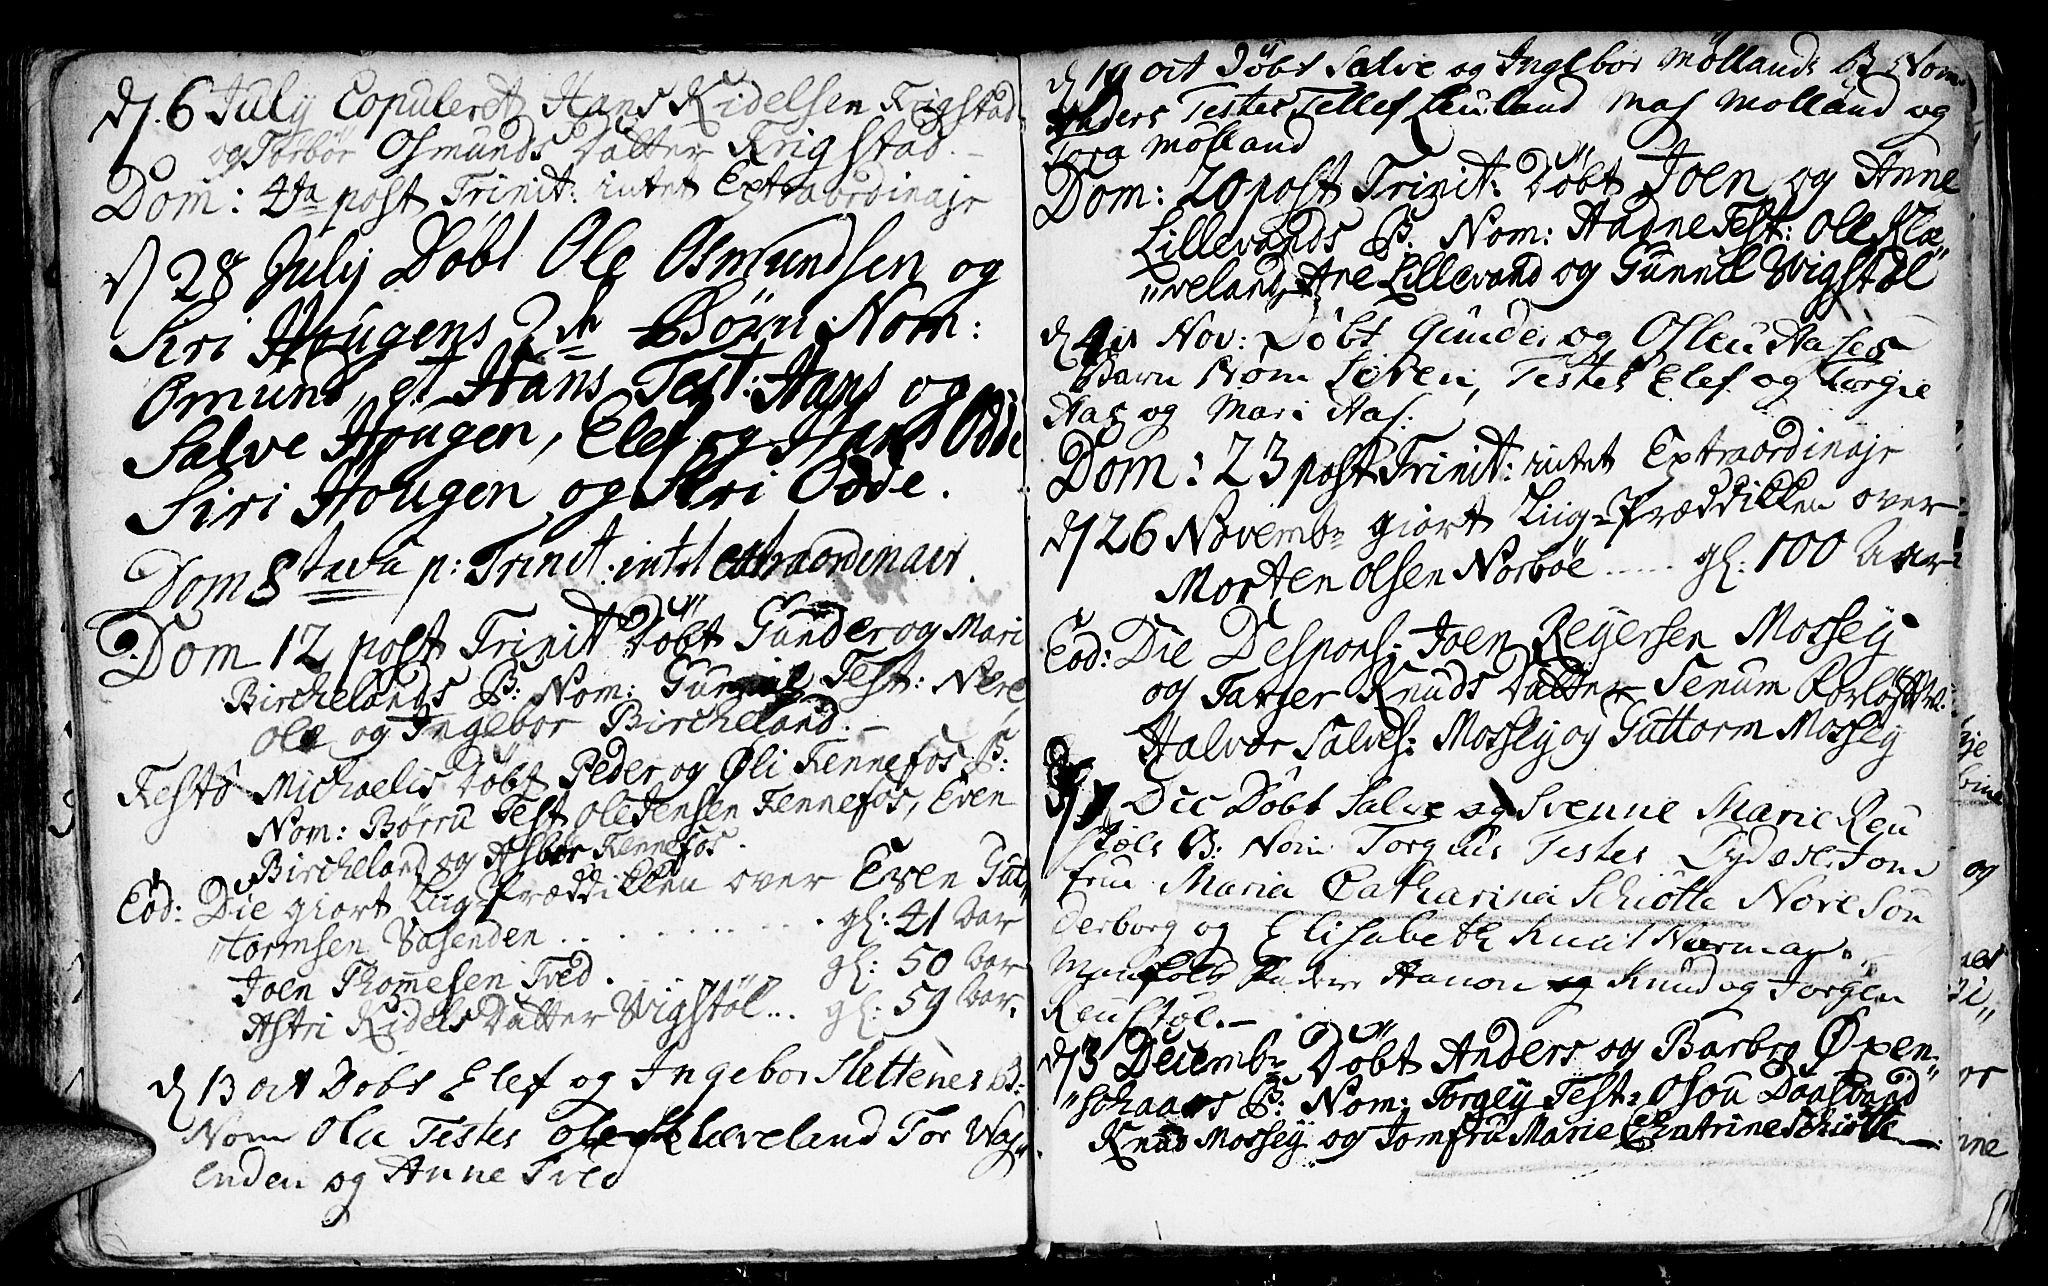 d. 6 July Copuleret Hans Kidelsen Frigstad
og Torbor Osmunds Datter Frigstad. –
Dom: 4ta post Trinit: intet Extraordinair
d 28 July Döbt Ole Osmundsen og
Siri Hougens 2de Börn: Nom:
Osmund, et Hans Test: Hans og
Salve Hougen, Elef og Hans Odde
Siri Hougen og Siri Odde.
Dom 8tava p: Trinit: intet extraordinair.
Dom 12 post Trinit Döbt Gunder og Mari
Birchelands B: Nom: Test: Nere,
Ole og Ingebor Bircheland. –
Festo Michaelis Döbt Peder og Øli Fennefos B:
Nom: Börru Test Ole Jensen Fennefos, Even
Bircheland og Asbor Fennefos.
Eod: Die giort Liig-Præddikken over Even Gut„
„tormsen Vasenden . . . . . gl: 41 Aar
Joen Thomesen Tved . . . gl: 50 Aar
Astri Kidels Datter Vigstöl . . gl: 59 Aar.
d 13 oct Döbt Elef og Ingebor Slettenes B:
Nom Ole Testes Ole Klæveland Tor Vas„
enden og Anne Tved
d 19 oct Döbt Salve og Ingebor Mollands B Nom
Anders Testes Tellef Leuland Mas Molland og
Tora Molland
Dom: 20 post Trinit: Döbt Joen og Anne
Lillevands B. Nom: Aadne Test: Ole Klæ„
„veland, Ane Lillevand og Gunnil Vigstöl
d Nov: Döbt Gunder og Oslau Aases
Barn Nom Soren, Testes Elef og Torgie
Aas og Mari Aas.
Dom: 23 post Trinit: intet Extraordinair
d 26 Novembr giort Liig-Præddikken over
Morten Olsen Norboe . . . . . gl: 100 Aar
Eod: Die Despons: Joen Reyersen Mossey
og Targer Knuds Datter Senum Forlöft W.
Halvor Salves: Mossey og Guttorm Mossey
Die Döbt Salve og Svenne Marie Reu
stöls B: Nom Torgius Testes Jom
fru Maria Catharina Schiötte Nore Sön
derborg og Elisabeth Knud
Hanon og Knud og Jorgen
Reustöl. –
d 3 Decembr Döbt Anders og Barbro Øxen„
„schaars B: Nom: Torgey Test: Osou Daasvand
Knud Mossey og Jomfru Marie Chatrine Schiötte